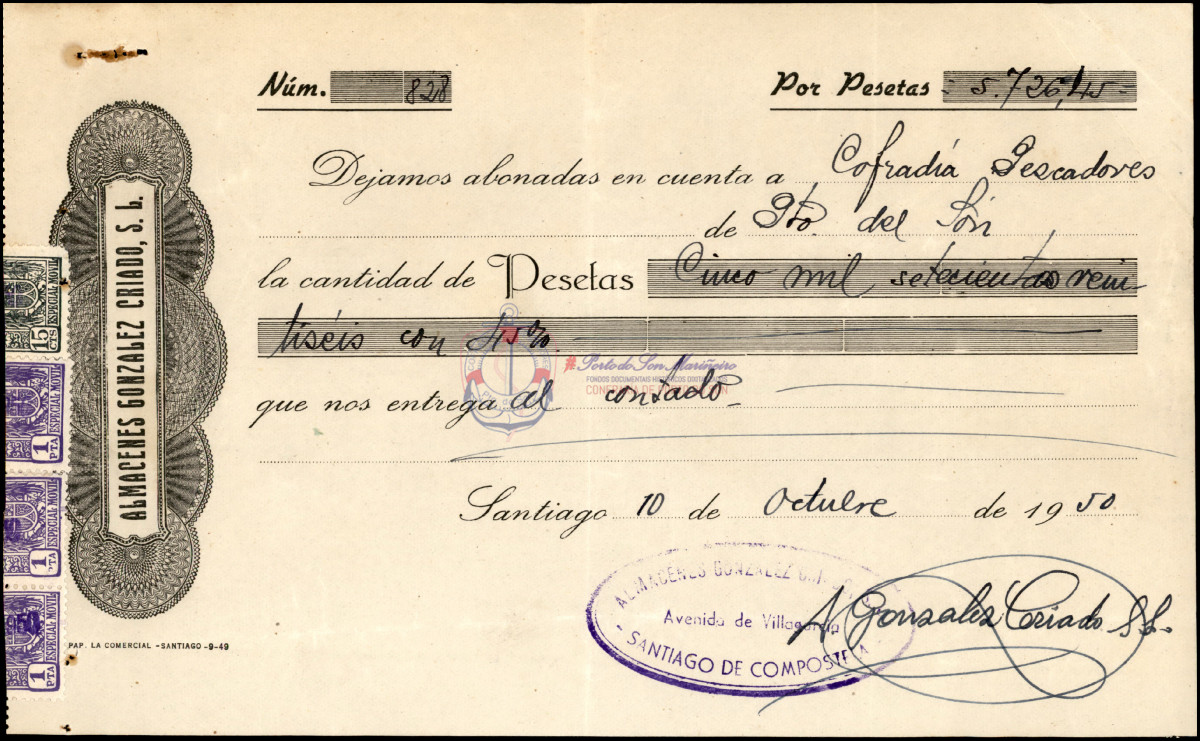 Núm. 828
Por Pesetas = 5.726,45 =
Dejamos abonadas en cuenta a Cofradía Pescadores
de Pto. del Són
la cantidad de Pesetas Cinco mil setecientas vein
tiséis con 45%
que nos entrega al contado
Santiago 10 de Octubre de 1950
ALMACENES GONZALEZ CRIADO, S. L.
15 CTS ESPECIAL MOVIL
1 PTA ESPECIAL MOVIL
1 PTA ESPECIAL MOVIL
1 PTA ESPECIAL MOVIL
PAP. LA COMERCIAL - SANTIAGO - 9-49
#PortodoSonMariñeiro
FONDOS DOCUMENTAIS HISTÓRICOS DIXITALIZADOS
ALMACENES GONZALEZ
Avenida de Villagarcía
- SANTIAGO DE COMPOSTELA
A Gonzalez Criado S.L.